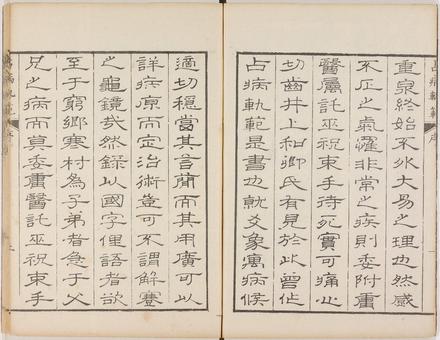 占病軌範 序
重泉終始不外大易之理也然感
不正之氣罹非常之疾則委附庸
醫屬託巫祝束手待死實可痛心
切齒井上和卿氏有見於此曾作
占病軌範是書也就爻象寓病候
適切穩當其言簡而其用廣可以
詳病原而定治術豈可不謂解蹇
之龜鏡哉然錄以國字俚語者欲
至于窮鄉寒村為子弟者急于父
兄之病而莫委庸醫託巫祝束手